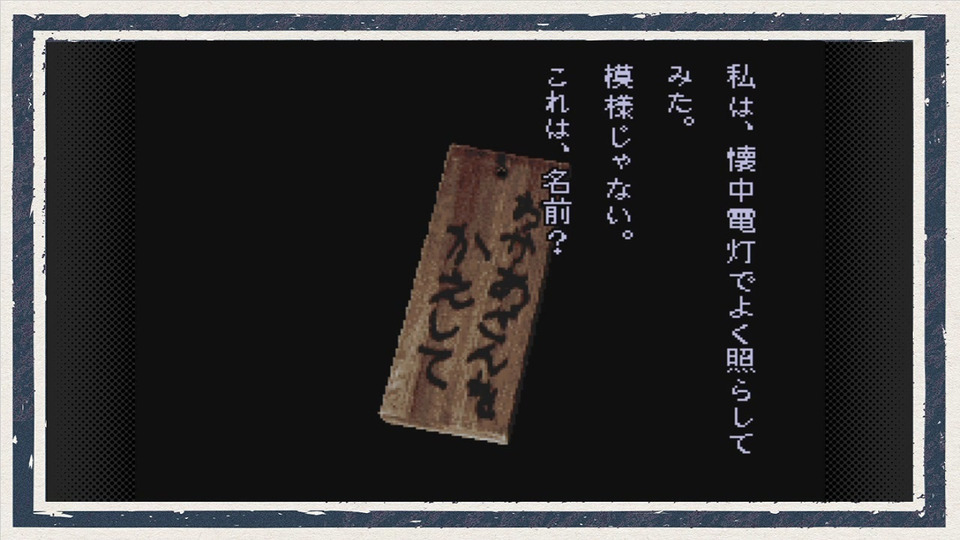 私は、懐中電灯でよく照らして
みた。
模様じゃない。
これは、名前？
おかあさんを
かえして